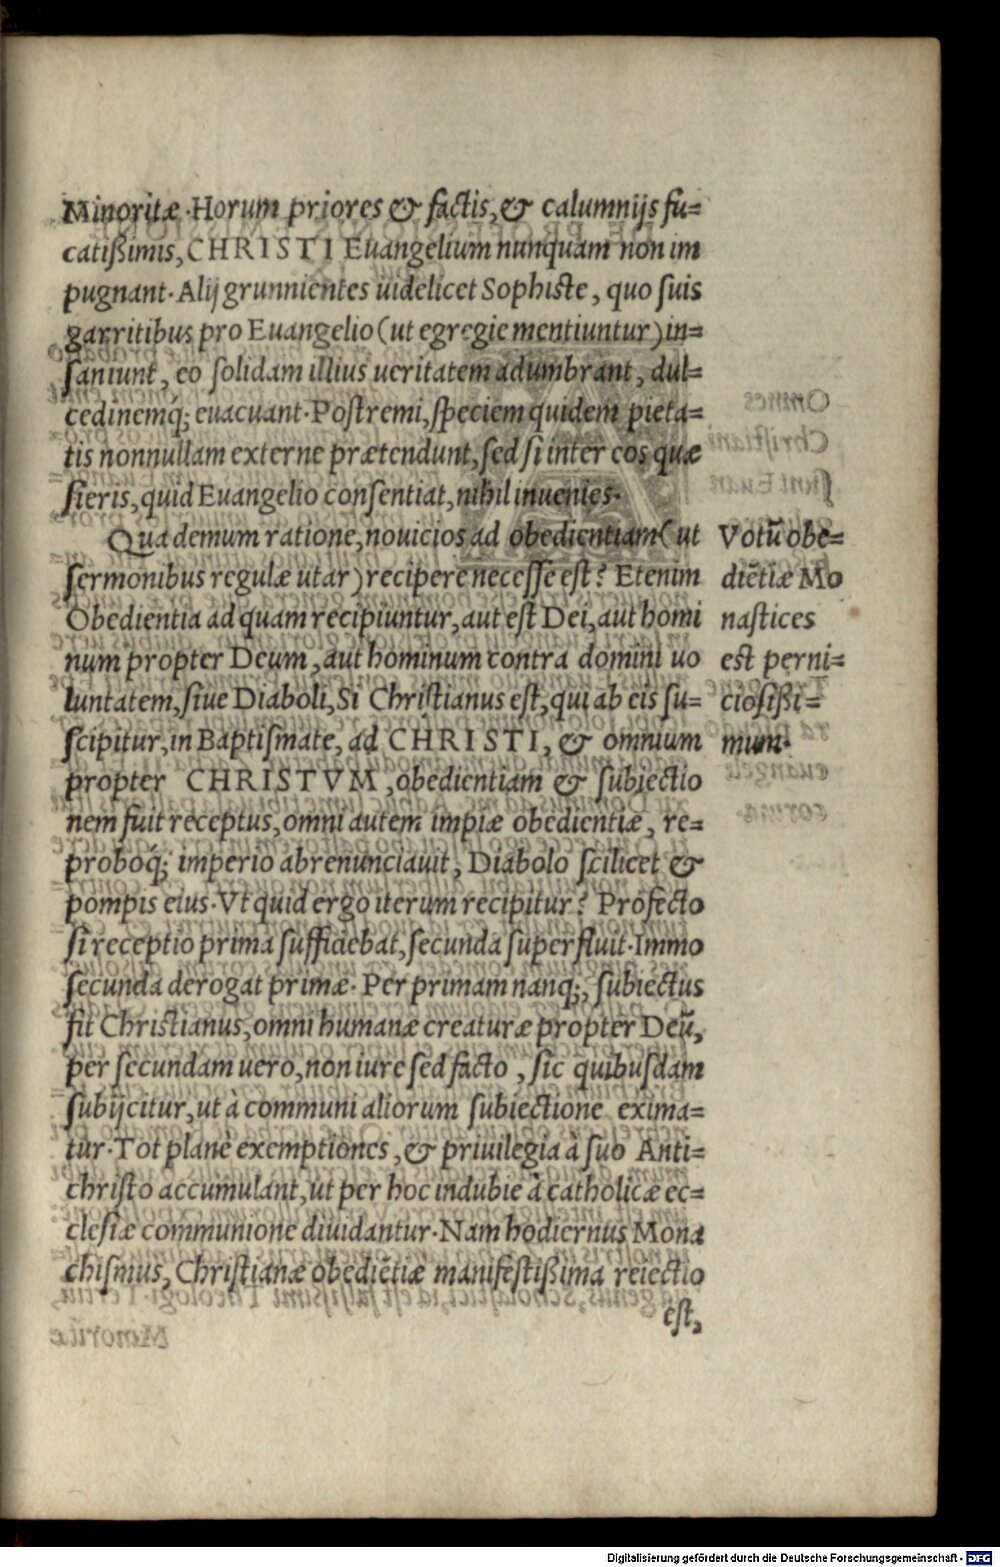 Minoritæ. Horum priores & factis, & calumnijs fu=
catißimis, CHRISTI Euangelium nunquam non im
pugnant. Alij grunnientes uidelicet Sophistæ, quo suis
garritibus pro Euangelio (ut egregie mentiuntur) in=
saniunt, eo solidam illius ueritatem adumbrant, dul=
cedinemq́; euacuant. Postremi, speciem quidem pieta=
tis nonnullam externe prætendunt, sed si inter eos quæ
sieris, quid Euangelio consentiat, nihil inuenies.
Qua demum ratione, nouicios ad obedientiam (ut
sermonibus regulæ utar) recipere necesse est? Etenim
Obedientia ad quam recipiuntur, aut est Dei, aut homi
num propter Deum, aut hominum contra domini uo
luntatem, siue Diaboli, Si Christianus est, qui ab eis su=
scipitur, in Baptismate, ad CHRISTI, & omnium
propter CHRISTVM, obedientiam & subiectio
nem fuit receptus, omni autem impiæ obedientiæ, re=
proboq́; imperio abrenunciauit, Diabolo scilicet &
pompis eius. Vt quid ergo iterum recipitur? Profecto
si receptio prima sufficiebat, secunda superfluit. Immo
secunda derogat primæ. Per primam nanq;, subiectus
fit Christianus, omni humanæ creaturæ propter Deũ,
per secundam uero, non iure sed facto, sic quibusdam
subijcitur, ut à communi aliorum subiectione exima=
tur. Tot planè exemptiones, & priuilegia à suo Anti=
christo accumulant, ut per hoc indubie à catholicæ ec=
clesiæ communione diuidantur. Nam hodiernus Mona
chismus, Christianæ obediẽtiæ manifestißima reiectio
est,
Votũ obe=
diẽtiæ Mo
nastices
est perni=
ciosißi=
mum.
Digitalisierung gefördert durch die Deutsche Forschungsgemeinschaft - DFG